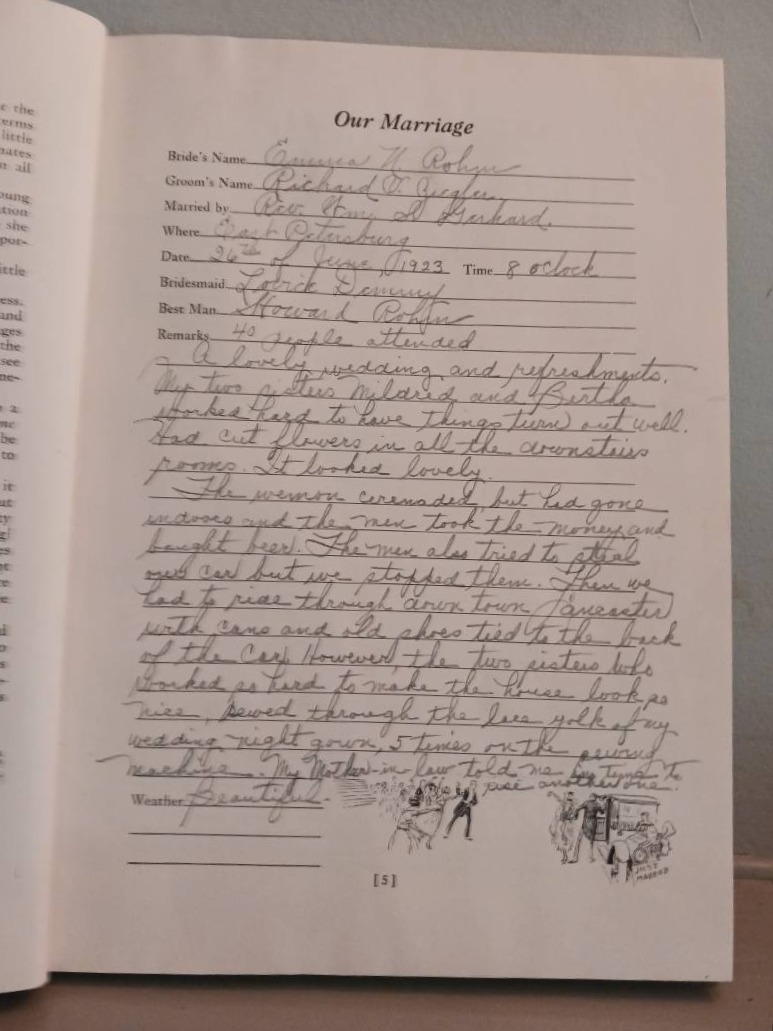 c the
erms
little
nates
n all
oung
tion
she
por-
ittle
ess.
and
ges
the
see
ne-
a
me
be
to
it
Our Marriage
Bride's Name Emma N. Rohm
Groom's Name Richard Ziegler
Married by Rev. Wm. Gerhard.
Where East Petersburg
Date 26th of June, 1923 Time 8 oclock
Bridesmaid
Best Man Howard Rohm
Remarks 40 people attended
A lovely wedding and refreshments.
My two sisters Mildred and Bertha
worked hard to have things turn out well.
Had cut flowers in all the downstairs
rooms. It looked lovely.
The wemon cerenaded, but had gone
indoors and the men took the money and
bought beer. The men also tried to steal
our car but we stopped them. Then we
had to ride through down town Lancaster
with cans and old shoes tied to the back
of the Car. However, the two sisters who
worked so hard to make the house look so
nice, sewed through the lace yolk of my
wedding night gown, 5 times on the sewing
machine. My Mother-in-law told me to
use another one.
Weather Beautiful
JUST
MARRIED
[5]